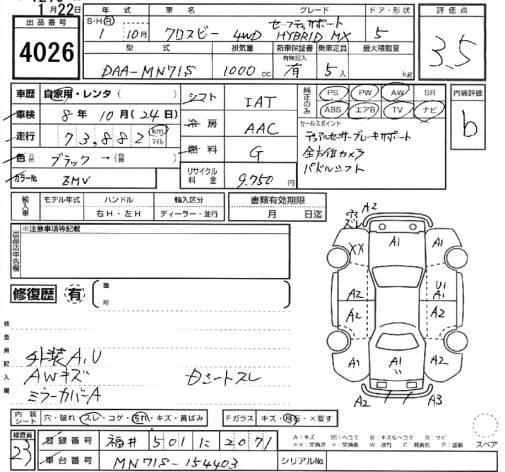 1月22日
出品番号
4026
年式 車名 グレード ドア・形状 評価点
S・H・R 1年 10月 クロスビー 4WD セーフティサポート HYBRID MX 5
3.5
型式 排気量 新車保証書 乗車定員 最大積載量
有無記入
DAA-MN71S 1000cc 有 5人 kg
車歴 自家用・レンタ( )
シフト IAT
純正のみ PS PW AW SR
ABS エアB TV ナビ
内装評価
b
車検 8年10月(24日)
冷房 AAC
セールスポイント
デュアルセンサーブレーキサポート
全方位カメラ
パドルシフト
走行 73,882 km マイル
燃料 G
色 ブラック→( )
カラーNo ZMV
リサイクル料金 9,750円
輸入車 モデル年式 ハンドル 輸入区分 書類有効期限
年 右H・左H ディーラー・並行 月 日迄
出品店申告欄
※注意事項等記載
修復歴 有
箇所
検査員記入欄
外装A,U
AWキズ
ミラーカバーA
Dシートスレ
A2
ズレ
A1
XX A1 A2
U1
A1
A2 A2
A2 A1 A2
A2 A3
スペア
内装シート 穴・破れ・スレ・コゲ・汚れ・キズ・黄ばみ
Fガラス キズ・飛石・×要す
検査員
23
登録番号 福井 501 に 2071
車台番号 MN71S-154403
シリアルNo.